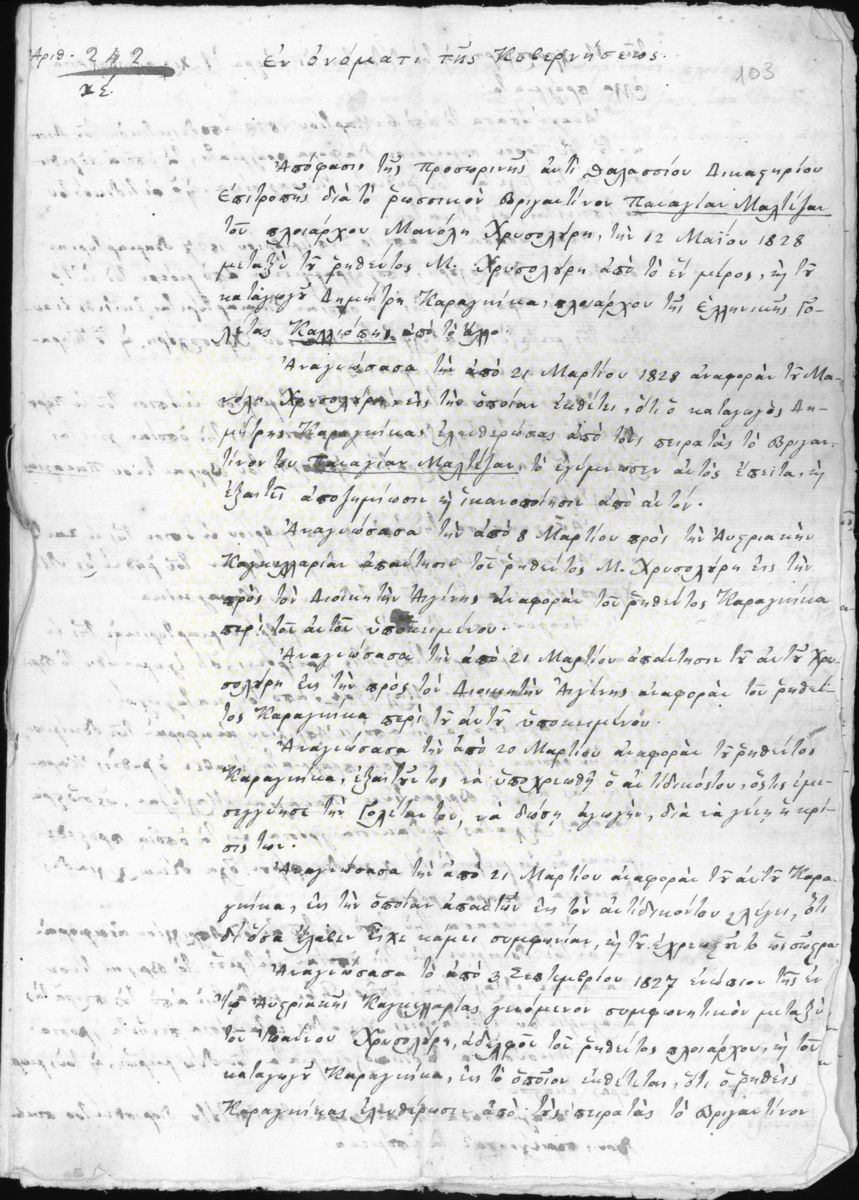 Ἀριθ. 242
κε΄.
Ἐν ὀνόματι τῆς Κυβερνήσεως.
103
Ἀπόφασις τῆς Προσωρινῆς ἀντὶ θαλασσίου Δικαστηρίου
Ἐπιτροπῆς διὰ τὸ ῥωσσικὸν Βριγαντῖνον Παναγίαν Μαλτέζαν
τοῦ πλοιάρχου Μανόλη Χρυσολύρη, τὴν 12 Μαΐου 1828
μεταξὺ τοῦ ῥηθέντος Μ. Χρυσολύρη ἀπὸ τὸ ἓν μέρος, καὶ τοῦ
καταγωγοῦ Δημήτρη Καραγκίκα, πλοιάρχου τῆς Ἑλληνικῆς Γο-
λέτας Καλλιόπης ἀπὸ τὸ ἄλλο.
Ἀναγνώσασα τὴν ἀπὸ 21 Μαρτίου 1828 ἀναφορὰν τοῦ Μα-
νόλη Χρυσολύρη, εἰς τὴν ὁποίαν ἐκθέτει, ὅτι ὁ καταγωγὸς Δη-
μήτρης Καραγκίκας ἐλευθερώσας ἀπὸ τοὺς πειρατὰς τὸ Βριγαν-
τῖνον του Παναγίαν Μαλτέζαν, τὸ ἐγύμνωσεν αὐτὸς ἔπειτα, καὶ
ἐξαιτεῖ ἀποζημίωσιν καὶ ἱκανοποίησιν ἀπὸ αὐτόν.
Ἀναγνώσασα τὴν ἀπὸ 8 Μαρτίου πρὸς τὴν Αὐστριακὴν
Καγκελλαρίαν ἀπάντησιν τοῦ ῥηθέντος Μ. Χρυσολύρη εἰς τὴν
πρὸς τὸν Διοικητὴν Αἰγίνης ἀναφορὰν τοῦ ῥηθέντος Καραγκίκα
περὶ τοῦ αὐτοῦ ὑποκειμένου.
Ἀναγνώσασα τὴν ἀπὸ 21 Μαρτίου ἀπάντησιν τοῦ αὐτοῦ Χρυ-
σολύρη εἰς τὴν πρὸς τὸν Διοικητὴν Αἰγίνης ἀναφορὰν τοῦ ῥηθέν-
τος Καραγκίκα περὶ τοῦ αὐτοῦ ὑποκειμένου.
Ἀναγνώσασα τὴν ἀπὸ 20 Μαρτίου ἀναφορὰν τοῦ ῥηθέντος
Καραγκίκα, ἐξαιτοῦντος νὰ ὑποχρεωθῇ ὁ ἀντίδικός του, ὅστις ἐμε-
σεγγύησε τὴν Γολέταν του, νὰ δώσῃ ἀγωγὴν, διὰ νὰ γείνῃ ἡ κρί-
σις των.
Ἀναγνώσασα τὴν ἀπὸ 21 Μαρτίου ἀναφορὰν τοῦ αὐτοῦ Καρα-
γκίκα, εἰς τὴν ὁποίαν ἀπαντῶν εἰς τὸν ἀντίδικόν του λέγει, ὅτι
δι' ὅσα ἔλαβεν εἶχε κάμει συμφωνίαν, καὶ τοῦ ἐχρεωστοῦντο ὡς σῶστρα
Ἀναγνώσασα τὸ ἀπὸ 3 Σεπτεμβρίου 1827 ἐνώπιον τῆς ἐν
Αὐστριακῆς Καγκελλαρίας γενόμενον συμφωνητικὸν μεταξὺ
τοῦ Ἰωάννου Χρυσολύρη, ἀδελφοῦ τοῦ ῥηθέντος πλοιάρχου, καὶ τοῦ
καταγωγοῦ Καραγκίκα, εἰς τὸ ὁποῖον ἐκθέτεται, ὅτι ὁ ῥηθεὶς
Καραγκίκας ἐλευθέρωσεν ἀπὸ τοὺς πειρατὰς τὸ Βριγαντῖνον